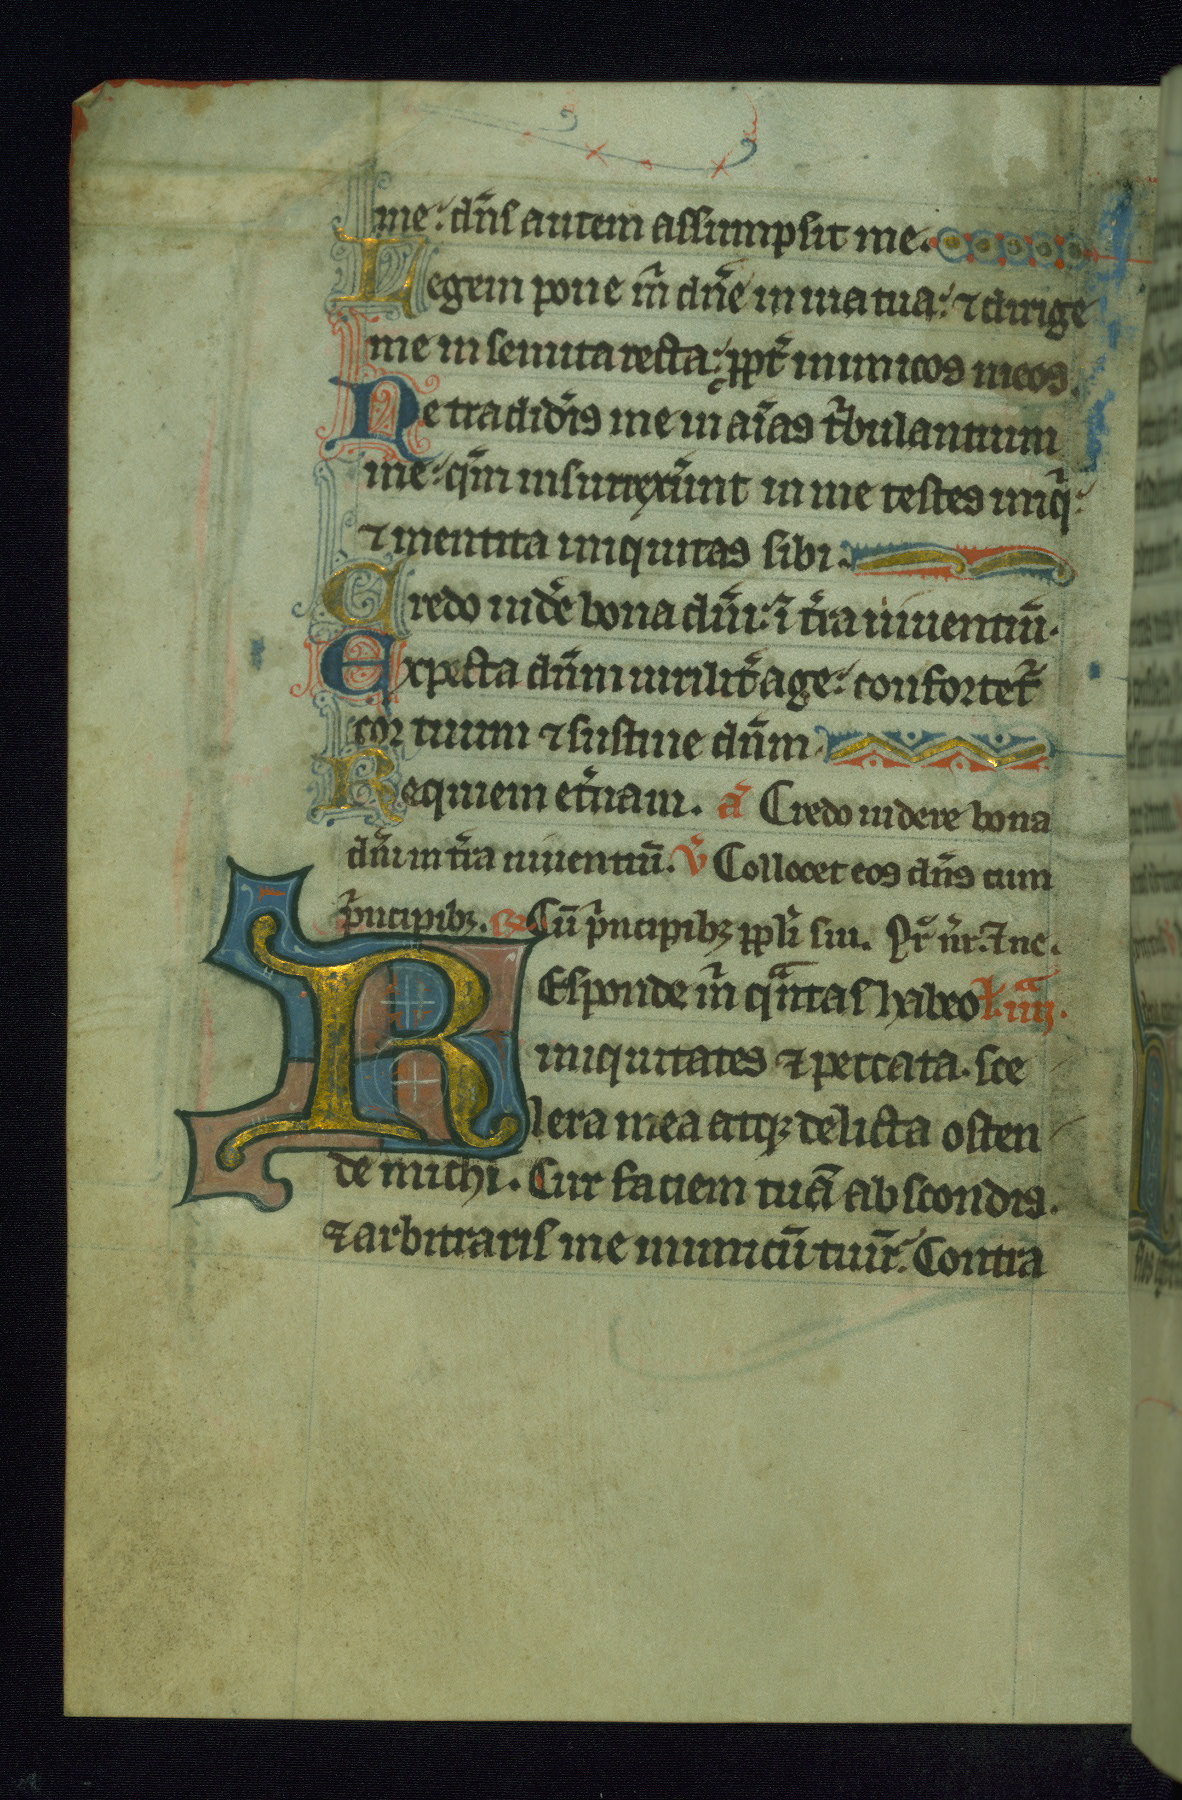 me. dn̄s autem assumpsit me.
Legem pone m̄ dn̄e in uia tua. ⁊ dirige
me in semita recta. ꝓpt̄ inimicos meos.
Ne tradid̄is me in aīas t̄bulantium
me. qm̄ insurrexer̄unt in me testes iniq̄.
⁊ mentita iniquitas sibi.
Credo uid̄e bona dn̄i. ī t̄ra uiuentiū.
Expecta dn̄m uirilit̄ age. confortet̄
cor tuum ⁊ sustine dn̄m.
Requiem et̄nam. a᷑ Credo uidere bona
dn̄i in t̄ra uiuentiū. v̄ Collocet eos dn̄s cum
p̄ncipibꝫ. Cū p̄ncipibꝫ ppl̄i sui. Pr̄ nr̄. ⁊ ne.
REsponde m̄ qn̄tas habeo l̄. iiij.
iniquitates ⁊ peccata. sce
lera mea atqꝫ delicta osten
de michi. Cur faciem tuā abscondis.
⁊ arbitraris me inimicū tuū. Contra